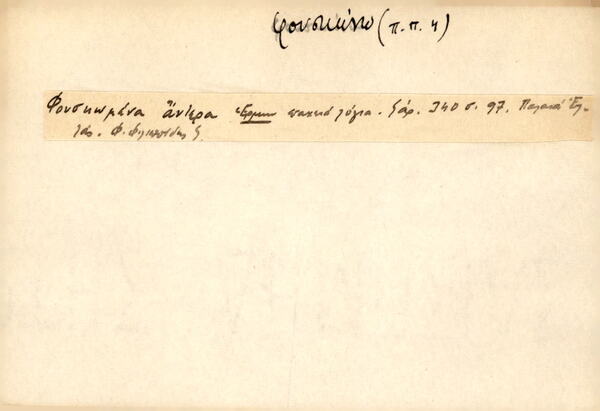 φουσκώνω (π.π. 4)
Φουσκωμένα ἄντερα παχειά λόγια. Λάρ. 340 σ. 97. Παλαιά Ἑλ-
λάς. Φ. Φιλιππίδης